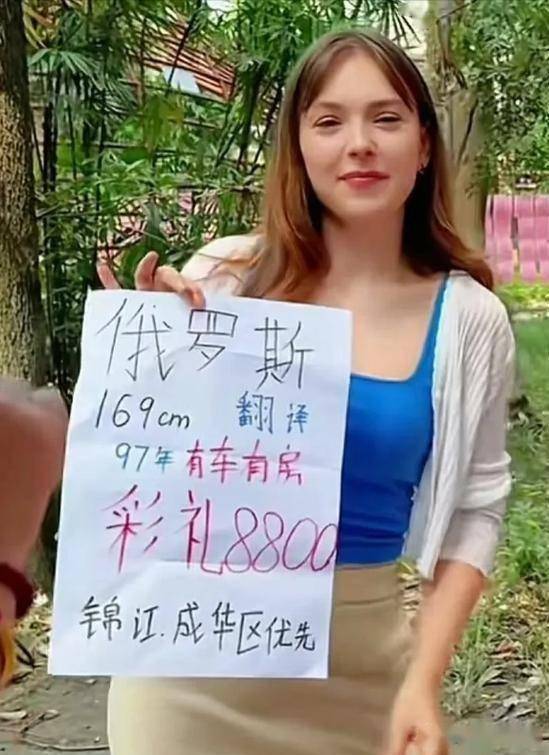 俄罗斯
169cm 翻译
97年 有车有房
彩礼8800
锦江.成华区优先